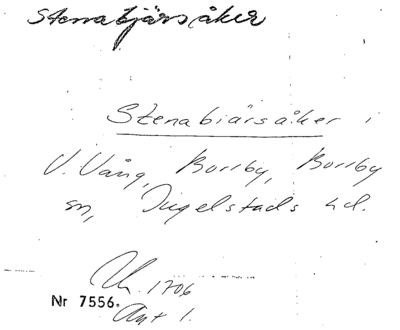 Stenabjärsåker
Stenabiärsåker i
V. Vång, Borrby, Borrby
sn, Ingelstads hd.
Ch. 1706
Nr 7556.
Akt 1.